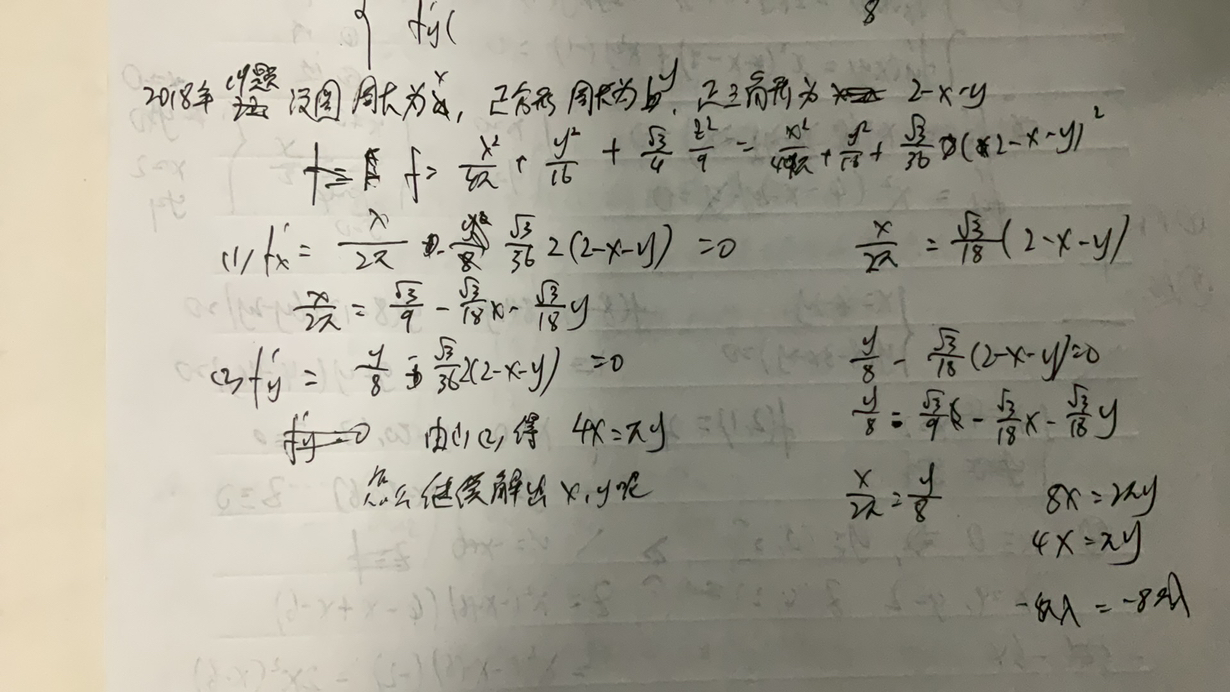 { f'y(
8
2018年 设圆周长为x, 正方形周长为y, 正三角形为 2-x-y
f = x²/4π + y²/16 + √3/4 z²/9 = x²/4π + y²/16 + √3/36 (2-x-y)²
(1) f'x = x/2π - √3/36 2(2-x-y) =0
x/2π = √3/18 (2-x-y)
x/2π = √3/9 - √3/18 x - √3/18 y
(2) f'y = y/8 - √3/36 2(2-x-y) =0
y/8 - √3/18 (2-x-y)=0
y/8 = √3/9 - √3/18 x - √3/18 y
由(1)(2)得 4x=πy
怎么继续解出x,y呢
x/2π = y/8
8x=2πy
4x=πy